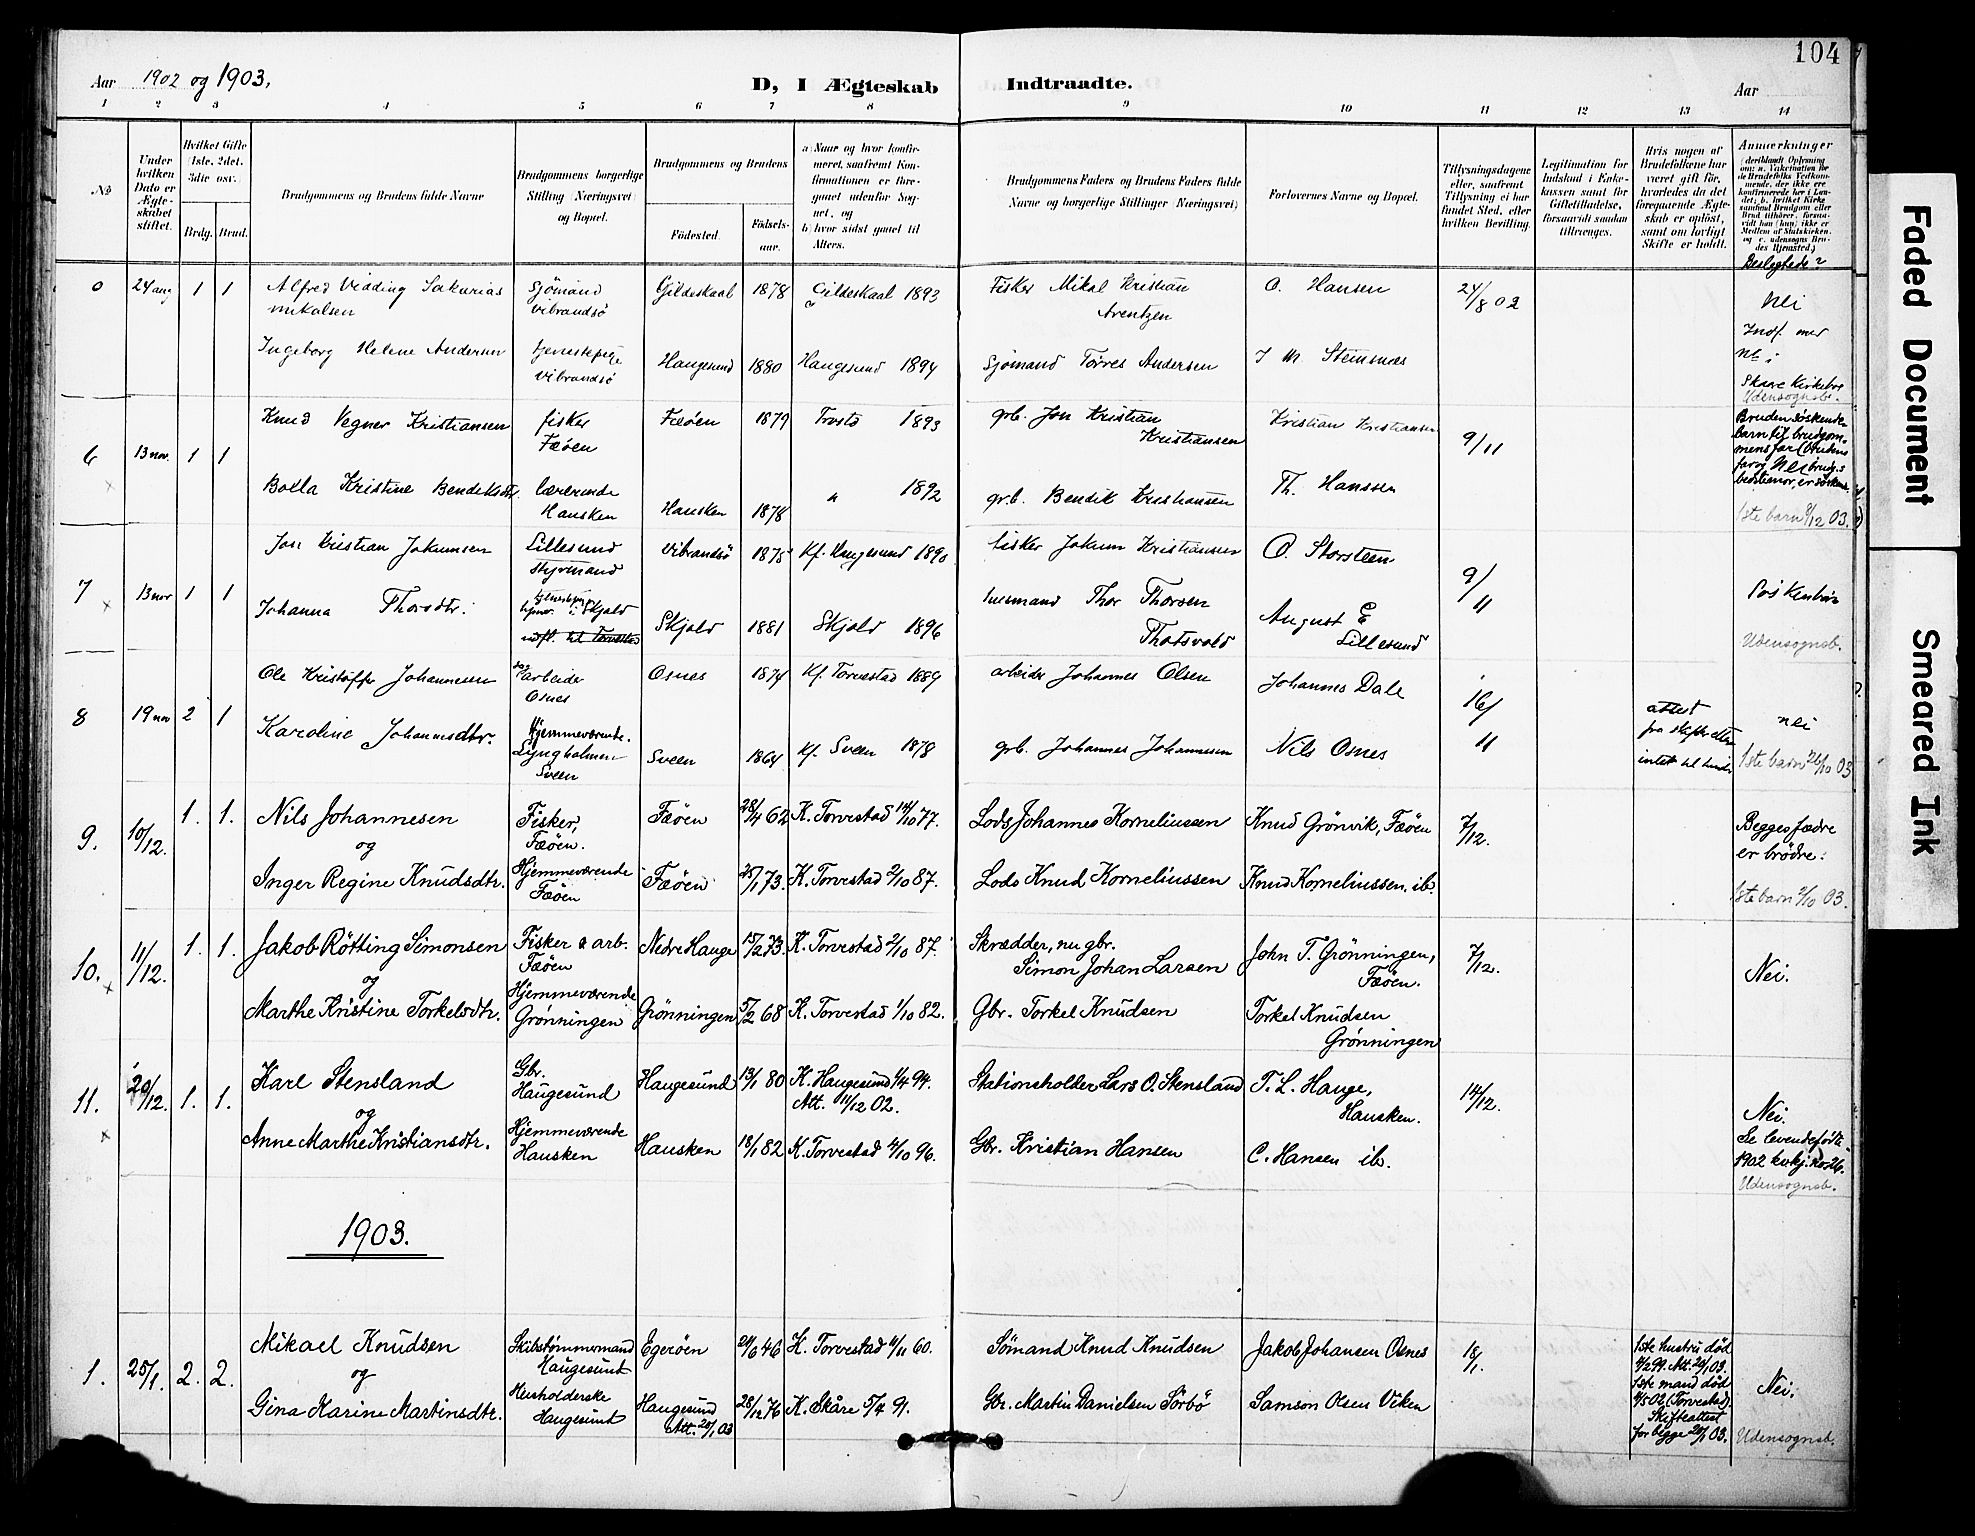 104
Aar 1902 og 1903.
D, I Ægteskab Indtraadte.
Aar
1 2 3 4 5 6 7 8 9 10 11 12 13 14
No
Under hvilken Dato er Ægteskabet stiftet.
Hvilket Gifte (1ste, 2det, 3die osv.)
Brdg. Brud.
Brudgommens og Brudens fulde Navne
Brudgommens borgerlige Stilling (Næringsvei) og Bopæl.
Brudgommens og Brudens
Fødested. Fødselsaar.
a) Naar og hvor konfirmeret, saafremt Konfirmationen er foregaaet udenfor Sognet, og
b) hvor sidst gaaet til Alters.
Brudgommens Faders og Brudens Faders fulde Navne og borgerlige Stillinger (Næringsvei)
Forlovernes Navne og Bopæl.
Tillysningsdagene eller, saafremt Tillysning ei har fundet Sted, efter hvilken Bevilling.
Legitimation for Indskud i Enkekassen samt for Giftetilladelse, forsaavidt saadan tiltrænges.
Hvis nogen af Brudefolkene har været gift før, hvorledes da det foregaaende Ægteskab er opløst, samt om lovligt Skifte er holdt.
Anmerkninger
Beslegtede?
0 24 aug 1 1 Alfred Vidding Sakarias Mikalsen Sjömand Vibrandsö Gildeskaal 1878 Gildeskaal 1893 Fisker Mikal Kristian Arentzen O. Hansen 24/8 02 Nei
Ingeborg Helene Andersen tjenestepige Vibrandsö Haugesund 1880 Haugesund 1894 Sjömand Torres Andersen J M. Stemnæs
Skaare Kirkebog
Udensognsb.
6 13 nov. 1 1 Knud Vegner Kristiansen fisker Fæöen Fæöen 1879 1893 grb. Jon Kristian Kristiansen Kristian Kristiansen 9/11
Bolla Kristine Bendiksdtr. lærerinde Hausken Hausken 1878 " 1892 grb. Bendik Kristiansen Th. Hanssen
1ste barn 9/12 03.
7 13 nov 1 1 Jon Kristian Johannsen Lillesund Styrmand Vibrandsö 1875 Kf. Haugesund 1890 fisker Johann Kristiansen O. Storsteen 9/11
Johanna Thorsdtr. Skjold 1881 Skjold 1896 husmand Thor Thorsen Thotsvold August E Lillesund
Udensognsb.
8 19 nov 2 1 Ole Kristoffer Johannesen arbeider Osnes Osnes 1874 Kf. Torvestad 1889 arbeider Johannes Olsen Johannes Dale 16/11
Karoline Johannsdtr. Hjemmeværende. Lyngholmen Sveen Sveen 1864 Kf. Sveen 1878 grb. Johannes Johannesen Nils Osnes attest fra skifteretten intet til hinder nei
1ste barn 26/10 03
9. 10/12. 1. 1. Nils Johannesen Fisker, Fæöen. Fæöen 28/4 62 K. Torvestad 14/10 77. Lods Johannes Korneliussen Knud Grönvik, Fæöen 7/12. Begges fædre er brödre.
og
Inger Regine Knudsdtr. Hjemmeværende Fæöen Fæöen 25/1 73. K. Torvestad 2/10 87. Lods Knud Korneliussen Knud Korneliussen. ib.
1ste barn 2/10 03.
10. 11/12. 1. 1. Jakob Rötting Simonsen Fisker & arb. Fæöen Nedre Hauge 15/2 73 K. Torvestad 2/10 87. Skrædder, nu gbr. Simon Johan Larsen John T. Grönningen, Fæöen. 7/12. Nei.
og
Marthe Kristine Torkelsdtr. Hjemmeværende Grönningen Grönningen 5/2 68 K. Torvestad 1/10 82. Gbr. Torkel Knudsen Torkel Knudsen Grönningen
11. 20/12. 1. 1. Karl Stensland Gbr. Haugesund Haugesund 13/1 80 K. Haugesund 1/4 94. Att. 11/12 02. Stationsholder Lars O. Stensland T. L. Hauge, Hausken. 14/12. Nei.
og
Anne Marthe Kristiansdtr. Hjemmeværende Hausken Hausken 18/1 82 K. Torvestad 4/10 96. Gbr. Kristian Hansen C. Hansen ib.
Se levendefødte 1902 kvkj. No 26.
Udensognsb.
1903.
1. 25/1. 2. 2. Mikael Knudsen Skibstømmermand Haugesunt Egeröen 24/6 46 K. Torvestad 4/11 60. Sömand Knud Knudsen Jakob Johansen Osnes 18/1. 1ste hustru död 4/2 99. Att. 20/1 03.
og
Gina Karine Martinsdtr. Husholderske Haugesunt Haugesund Att. 20/1 03 28/12 76 K. Skåre 5/4 91. Gbr. Martin Danielsen Sörbö Samson Olsen Viken 1ste mand död 4/5 02 (Torvestad). Skifteattest for begge 20/1 03. Nei.
Udensognsb.
Faded Document
Smeared Ink